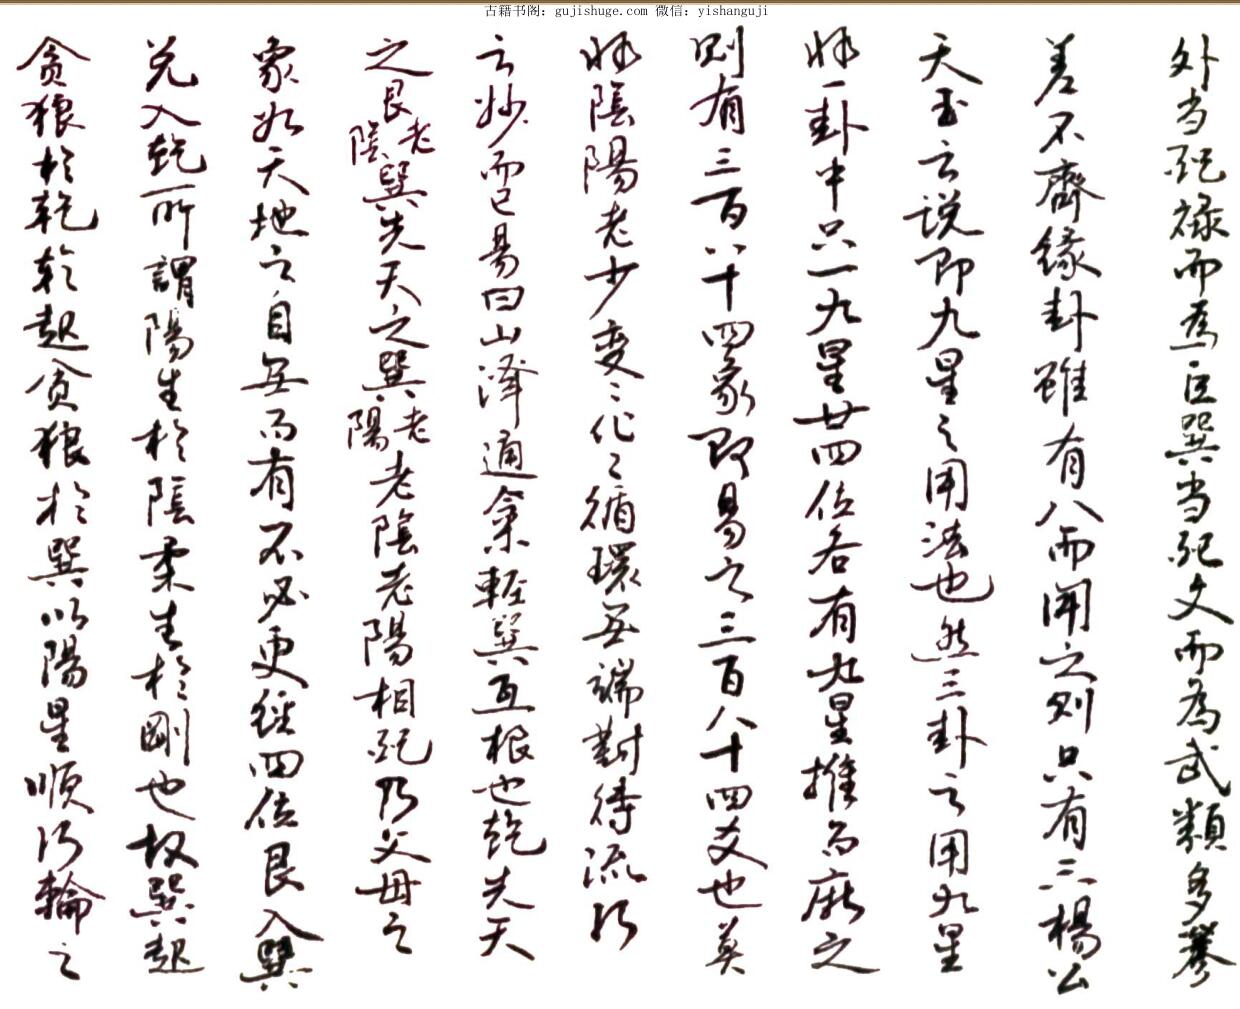 古籍书阁：gujishuge.com 微信：yishanguji
外当配禄而为巨巽当配文而為武類多參
差不齊缘卦雖有八而闻之则只有三楊公
天玉云说即九星之用法也然三卦之用九星
一卦中只一九星廿四位各有九星推而之
则有三百八十四象即易之三百八十四爻也莫
陰陽老少变〻化〻循環无端對待流行
云妙而已易曰山泽通氣乾巽互根也乾先天
之艮老陰巽先天之巽老陽老陰老陽相配乃父母之
象如天地之自无而有不必更經四位艮入巽
兑入乾所謂陽生於陰柔生於剛也故巽起
贪狼於乾乾起贪狼於巽以陽星順行輪之